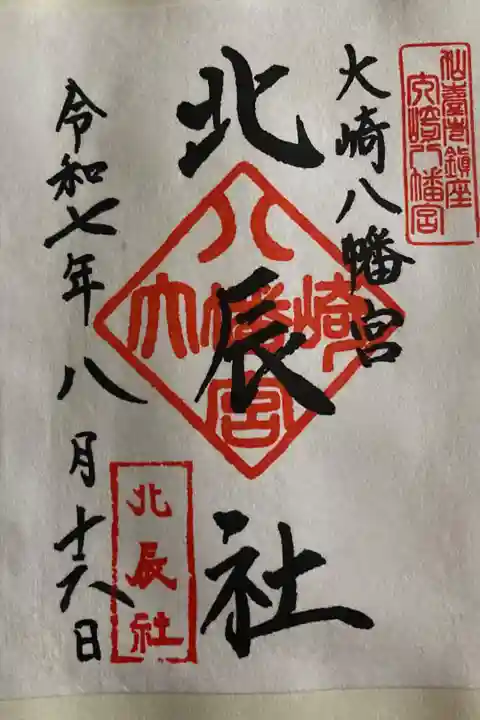 仙臺総鎮座
大崎八幡宮
大崎八幡宮
北辰社
八
大幡崎
宮
北辰社
令和七年八月十六日